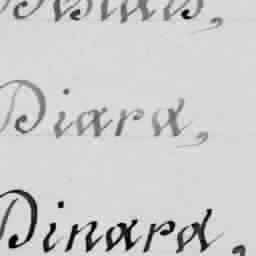 Diard,
Dinard,